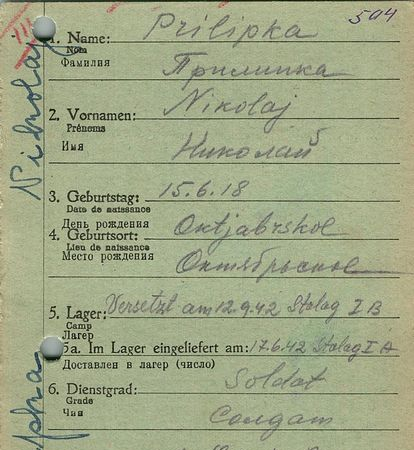 504
III
1. Name: Prilipka
Nom
Фамилия Прилипка
2. Vornamen: Nikolaj
Prénoms
Имя Николай 5
3. Geburtstag: 15.6.18
Date de naissance
День рождения
4. Geburtsort: Oktjabrskol
Lieu de naissance
Место рождения Октябрьскол
5. Lager: Versetzt am 12.9.42 Stalag I B
Camp
Лагер
5a. Im Lager eingeliefert am: 17.6.42 Stalag I A
Доставлен в лагер (число)
6. Dienstgrad: Soldat
Grade
Чин Солдат
Nikolaj
pka